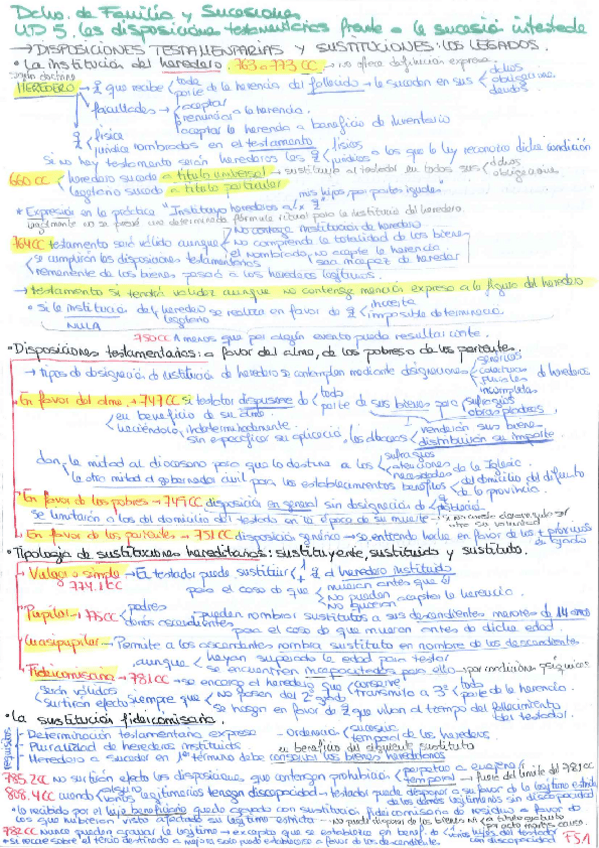 Dcho. de Familia y Sucesiones
UD 5. Las disposiciones testamentarias frente a la sucesión intestada
→ DISPOSICIONES TESTAMENTARIAS Y SUSTITUCIONES: LOS LEGADOS.
• La institución del heredero 763 a 773 CC → no ofrece definición expresa
según doctrina
HEREDERO → que recibe toda parte de la herencia del fallecido → le suceden en sus dchos obligaciones deudas
facultades → aceptar renunciar a la herencia.
aceptar la herencia a beneficio de inventario
física jurídica nombrados en el testamento
Si no hay testamento serán herederos las físicas jurídicas a las que la ley reconozca dicha condición
660 CC heredero sucede a título universal → sustituye al testador en todos sus dchos obligaciones
legatario sucede a título particular
mis hijos por partes iguales"
* Expresión en la práctica "Instituyo herederos a
legalmente no se prevé una determinada fórmula ritual para la institución del heredero
764 CC testamento será válido aunque No contenga institución de heredero
no comprenda la totalidad de los bienes
el nombrado no acepte la herencia
sea incapaz de heredar
se cumplirán las disposiciones testamentarias
remanente de los bienes pasará a los herederos legítimos.
→ testamento si tendrá validez aunque no contenga mención expresa a la figura del heredero
• Si la institución del heredero legatario se realiza en favor de incierta imposible determinarla
NULA
750 CC A menos que por algún evento pueda resultar cierta.
• Disposiciones testamentarias: a favor del alma, de los pobres o de los parientes.
→ tipos de designación de institución de heredero se contemplan mediante designaciones genéricas colectivas plurales incompletas de herederos
En favor del alma → 747 CC si testador dispusiere de todo parte de sus bienes para sufragios obras piadosas
en beneficio de su alma
haciéndolo indeterminadamente
sin especificar su aplicación, los albaceas venderán sus bienes distribuirán su importe
dan la mitad al diocesano para que lo destine a los sufragios atenciones necesidades de la Iglesia.
la otra mitad al gobernador civil para los establecimientos benéficos del domicilio del difunto de la provincia.
En favor de los pobres → 749 CC disposición en general sin designación de población
se limitarán a los del domicilio del testador en la época de su muerte
En favor de los parientes → 751 CC disposición genérica → se entiende hecha en favor de los + próximos en grado
• Tipología de sustituciones hereditarias: sustituyente, sustituido y sustituto.
Vulgar o simple → El testador puede sustituir al heredero instituido
774.1 CC
para el caso de que mueran antes que él
no puedan aceptar la herencia.
no quieran
Pupilar → 775 CC padres demás ascendientes pueden nombrar sustitutos a sus descendientes menores de 14 años
para el caso de que mueran antes de dicha edad.
Cuasipupilar → Permite a los ascendientes nombrar sustituto en nombre de los descendientes
aunque hayan superado la edad para testar
se encuentren incapacitados para ello → por condiciones psíquicas
Fideicomisaria → 781 CC → se encarga al heredero que conserve transmita a 3º todo parte de la herencia.
serán válidas
surtirán efecto siempre que no pasen del 2º grado
se hagan en favor de que vivan al tiempo del fallecimiento del testador.
• La sustitución fideicomisaria.
requisitos
- Determinación testamentaria expresa
- Pluralidad de herederos instituidos → ordenación sucesiva temporal de los herederos
- Heredero a suceder en 1er término debe conservar los bienes hereditarios en beneficio del siguiente sustituto
785.2 CC no surtirán efecto las disposiciones que contengan prohibición perpetua de enajenar temporal → fuera del límite del 781 CC
808.4 CC cuando alguno varios legitimarios tengan discapacidad → testador puede disponer a su favor de la legítima estricta de los demás legitimarios sin discapacidad
• lo recibido por el hijo beneficiado queda gravado con sustitución fideicomisaria de residuo a favor de
los que hubieren visto afectada su legítima estricta → no puede disponer de los bienes ni a título gratuito
por acto mortis causa.
782 CC Nunca pueden gravar la legítima → excepto que se establezca en benef. de varios hijos del testador con discapacidad
• si recae sobre el tercio destinado a mejora solo puede establecerse a favor de los descendientes.
FSA